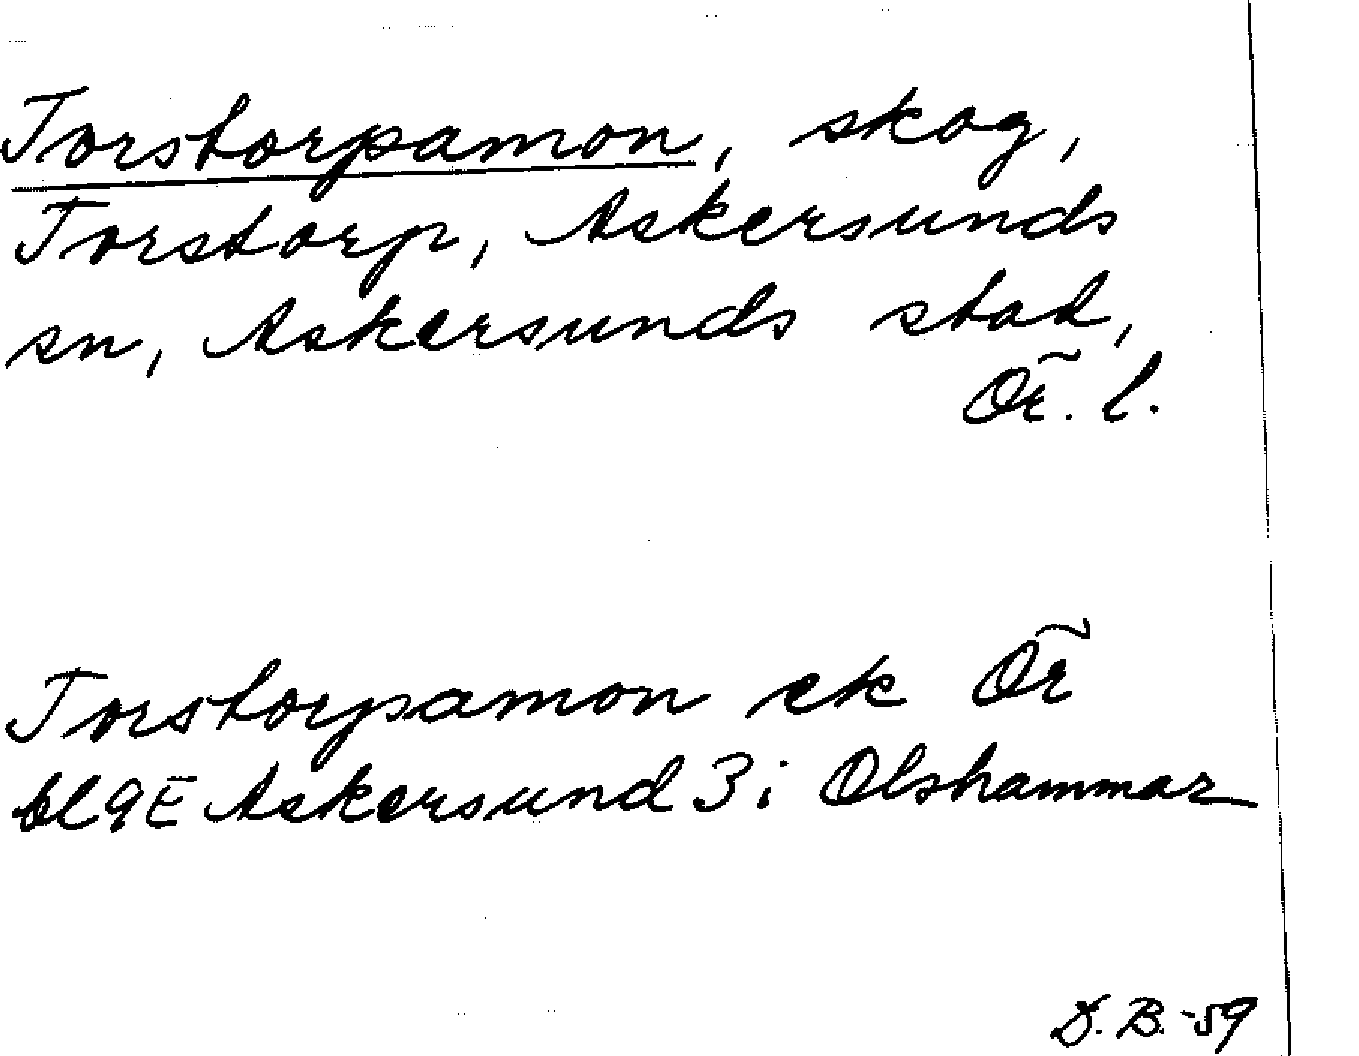 Torstorpamon, skog,
Torstorp, Askersunds
sn, Askersunds stad,
Ör. l.
Torstorpamon ek Ör
bl 9E Askersund 3 i Olshammar
D. B. -59